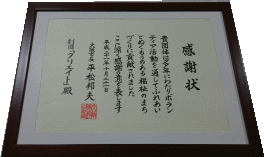 感謝状
貴団体は多年にわたりボラン
ティア活動を通してふれあい
とぬくもりのある福祉のまち
づくりに貢献されました
ここに深く感謝の意を表します
平成二十一年十月二十一日
大阪市長 平松邦夫
劇団「クリエイト」殿